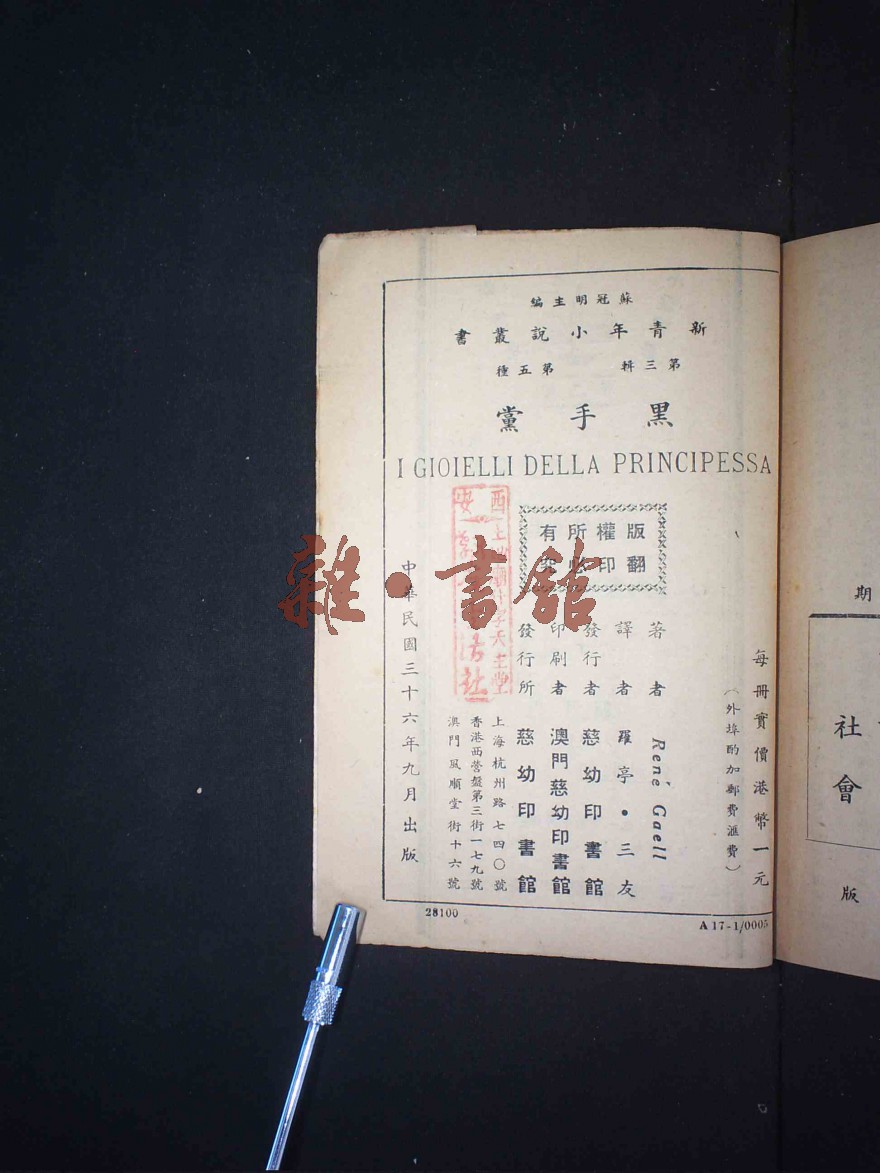 蘇冠明主編
新青年小說叢書
第三輯 第五種
黑手黨
I GIOIELLI DELLA PRINCIPESSA
版權所有
翻印必究
每冊實價港幣一元
（外埠酌加郵費滙費）
著者 René Gaell
譯者 羅亭・三友
發行者 慈幼印書館
印刷者 澳門慈幼印書館
發行所 慈幼印書館
上海杭州路七四〇號
香港西營盤第三街一七九號
澳門風順堂街十六號
中華民國三十六年九月出版
28100
A 17-1/0005
西安
天主堂
社
雜・書館
期
社會
版